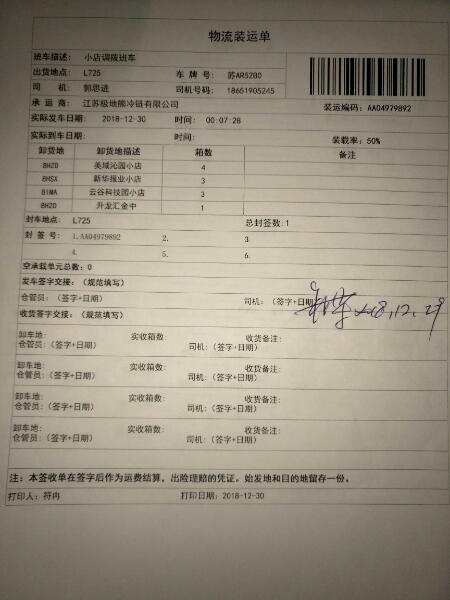 物流装运单
班车描述: 小店调拨班车
出货地点: L725 车 牌 号: 苏AR52B0
司 机: 郭思进 司机号码: 18651905245
承 运 商: 江苏极地熊冷链有限公司 装运编码: AA04979892
实际发车日期: 2018-12-30 时间: 00:07:28
实际到车日期: 时间: 装载率: 50%
卸货地 卸货地描述 箱数 备注
8HZD 美域沁园小店 4
8HSX 新华报业小店 3
81MA 云谷科技园小店 3
8H2D 升龙汇金中 1
封车地点: L725 总封签数:1
封 签 号: 1.AA04979892 2. 3.
4. 5. 6.
空承载单元总数: 0
发车签字交接: (规范填写)
仓管员: (签字+日期) 司机: (签字+日期) 18,12,29
收货签字交接: (规范填写)
卸车地: 实收箱数: 收货备注:
仓管员: (签字+日期) 司机: (签字+日期)
卸车地: 实收箱数: 收货备注:
仓管员: (签字+日期) 司机: (签字+日期)
卸车地: 实收箱数: 收货备注:
仓管员: (签字+日期) 司机: (签字+日期)
卸车地: 实收箱数: 收货备注:
仓管员: (签字+日期) 司机: (签字+日期)
注: 本签收单在签字后作为运费结算, 出险理赔的凭证。始发地和目的地留存一份。
打印人: 符冉 打印日期: 2018-12-30